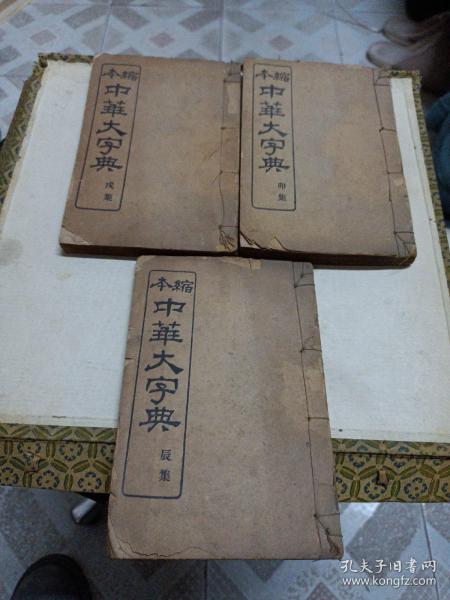 縮本
中華大字典
戌集
縮本
中華大字典
卯集
縮本
中華大字典
辰集
孔夫子旧书网
www.kongfz.com